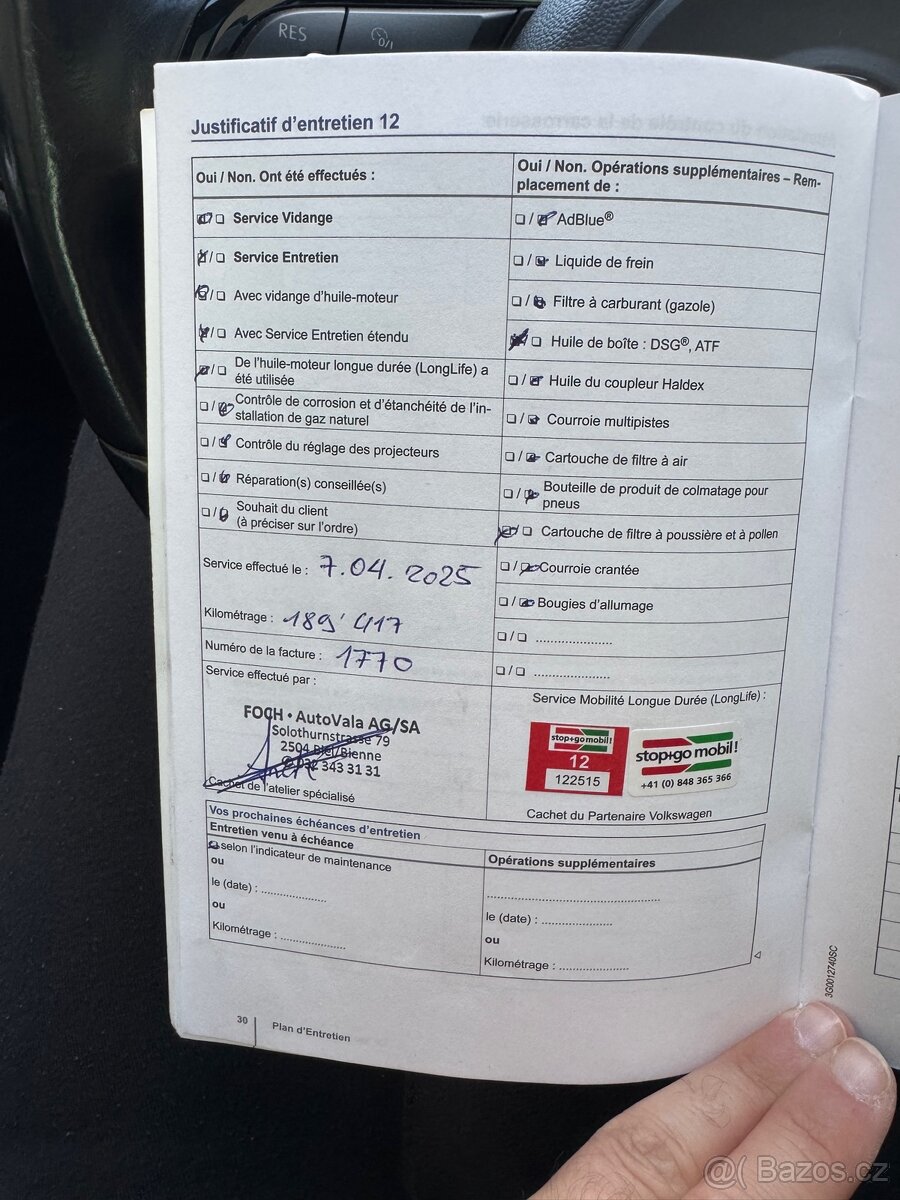 RES
Justificatif d'entretien 12
Oui / Non. Ont été effectués :
Service Vidange
Service Entretien
Avec vidange d'huile-moteur
Avec Service Entretien étendu
De l'huile-moteur longue durée (LongLife) a
été utilisée
Contrôle de corrosion et d'étanchéité de l'in-
stallation de gaz naturel
Contrôle du réglage des projecteurs
Réparation(s) conseillée(s)
Souhait du client
(à préciser sur l'ordre)
Service effectué le : 7.04.2025
Kilométrage : 189'417
Numéro de la facture : 1770
Service effectué par :
FOCH • AutoVala AG/SA
Solothurnstrasse 79
2504 Biel/Bienne
032 343 31 31
Cachet de l'atelier spécialisé
Oui / Non. Opérations supplémentaires – Rem-
placement de :
AdBlue®
Liquide de frein
Filtre à carburant (gazole)
Huile de boîte : DSG®, ATF
Huile du coupleur Haldex
Courroie multipistes
Cartouche de filtre à air
Bouteille de produit de colmatage pour
pneus
Cartouche de filtre à poussière et à pollen
Courroie crantée
Bougies d'allumage
Service Mobilité Longue Durée (LongLife) :
stop+go mobil!
12
122515
stop+go mobil!
+41 (0) 848 365 366
Cachet du Partenaire Volkswagen
Vos prochaines échéances d'entretien
Entretien venu à échéance
selon l'indicateur de maintenance
ou
le (date) : ....................
ou
Kilométrage : ....................
Opérations supplémentaires
le (date) : ....................
ou
Kilométrage : ....................
3G0012740SC
30
Plan d'Entretien
@( Bazos.cz